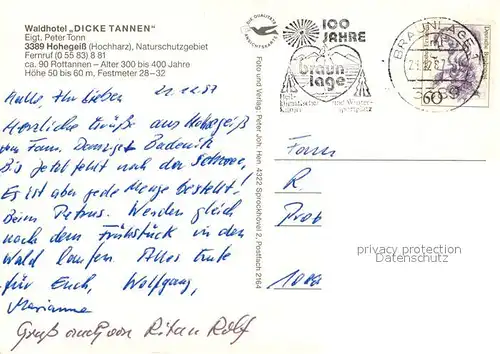 Waldhotel „DICKE TANNEN"
Eigt. Peter Tonn
3389 Hohegeiß (Hochharz), Naturschutzgebiet
Fernruf (0 55 83) 8 81
ca. 90 Rottannen – Alter 300 bis 400 Jahre
Höhe 50 bis 60 m, Festmeter 28–32
Hallo, Ihr Lieben
Herzliche Grüße aus Hohegeiß
von Fam.
Bis jetzt fehlt noch der Schnee,
Es ist aber jede Menge bestellt!
Beim Petrus. Werden gleich
nach dem Frühstück in den
Wald laufen. Alles Gute
für Euch, Wolfgang,
Marianne
Gruß auch von Rita u. Rolf
Foto und Verlag: Peter Joh. Hen, 4322 Sprockhövel 2, Postfach 2164
100
JAHRE
braun
lage
Heil-
klimatischer und Winter-
kurort sportplatz
BRAUNLAGE 1
3389
60
Fam
R
1000
privacy protection
Datenschutz